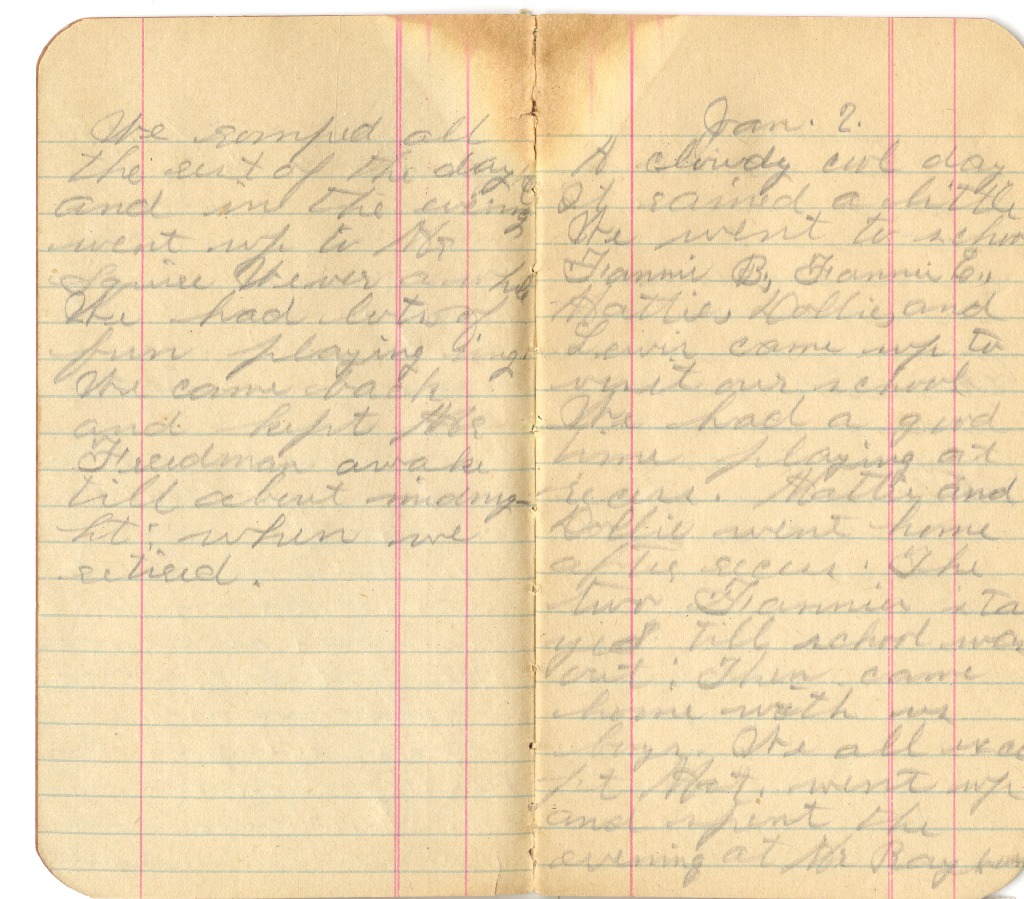 We romped all
the rest of the day
and in the evening
went up to Mr
Squire Wever a while
We had lots of
fun playing
We came back
and kept Mr
Freedman awake
till about midnig-
ht; when we
retired.
Jan. 2.
A cloudy cool day
It rained a little
We went to school
Fannie B., Fannie E.,
Hattie, Dollie, and
Lewis came up to
visit our school
We had a good
time playing at
recess. Hattie and
Dollie went home
after recess. The
two Fannies sta
yed till school was
out; Then came
home with us
boys. We all exce
pt Hat, went up
and spent the
evening at Mr Ray